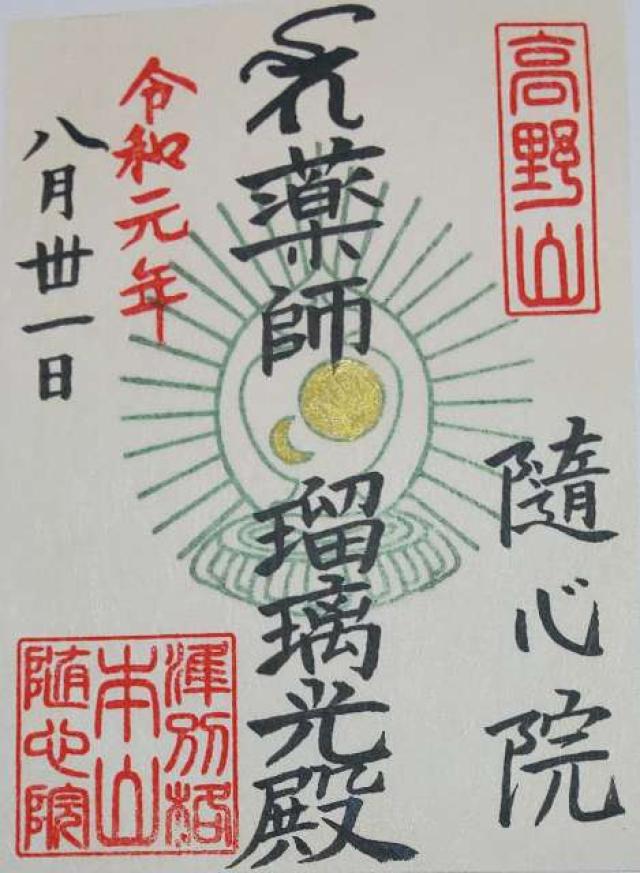 高野山
隨心院
薬師 瑠璃光殿
令和元年
八月丗一日
準別格
本山
随心院